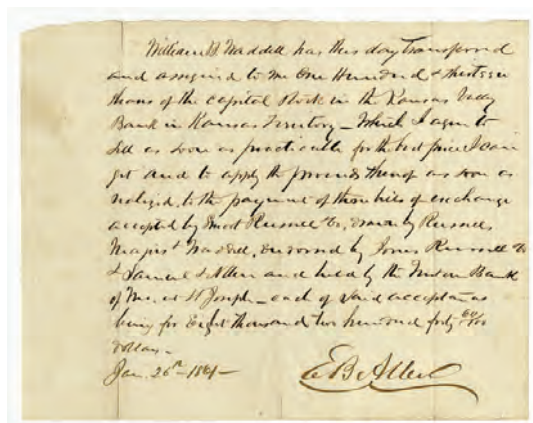 William B. Waddell has this day transferred
and assigned to me One Hundred & thirteen
shares of the capital Stock in the Kansas Valley
Bank in Kansas Territory – Which I agree to
Sell as soon as practicable for the best price I can
get and to apply the proceeds thereof as soon as
realized, to the payment of three bills of exchange
accepted by Smoot Russell & Co, drawn by Russell
Majors & Waddell, endorsed by Jones Russell & Co
& Samuel & Allen and held by the Union Bank
of Mo. at St Joseph – each of said acceptances
being for Eight thousand two hundred forty 60/100
Dollars –
Jan. 26th – 1861 –
E B Allen